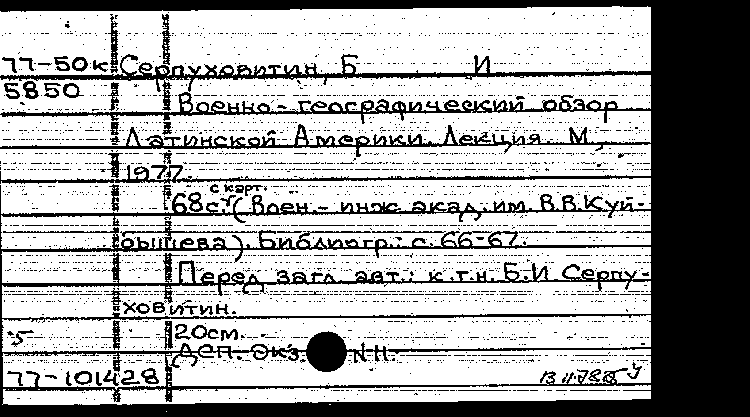 77-50к Серпуховитин, Б И
5850
Военно-географический обзор
Латинской Америки. Лекция. М.,
1977.
с карт.
68с. (Воен.-инж акад. им. В.В.Куй-
бышева). Библиогр.: с. 66-67.
Перед загл. авт.: к.т.н. Б.И Серпу-
ховитин.
20см.
ДСП. Экз. N11.
77-101428